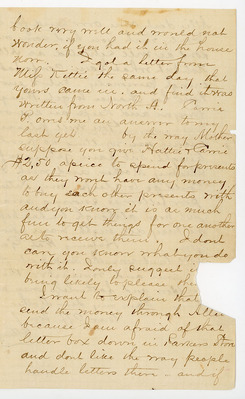 book very well and would not
wonder if you had it in the house
now. I got a letter from
Wife Nettie the same day that
yours came in. and find it was
written from North A.
owes me an answer to my
last yet by the way Mother
suppose you give Hattie &
$2.50 apiece to spend for presents
as they wont have any money
to buy each other presents with
and you know it is as much
fun to get things for one another
as to receive them. I dont
care you know what you do
with it. I only suggest it
being likely to please
I want to explain that
send the money through Allie
because I am afraid of that
letter box down in Parkers Store
and dont like the way people
handle letters there - and if